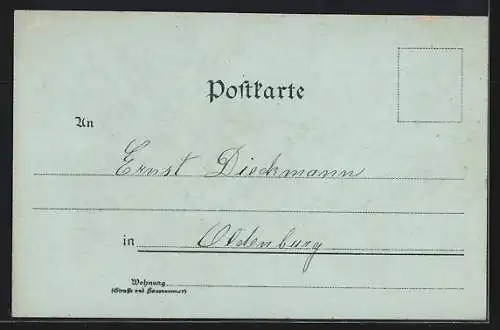 Postkarte
An
Ernst Dieckmann
in Oldenburg
Wohnung
(Straße und Hausnummer)